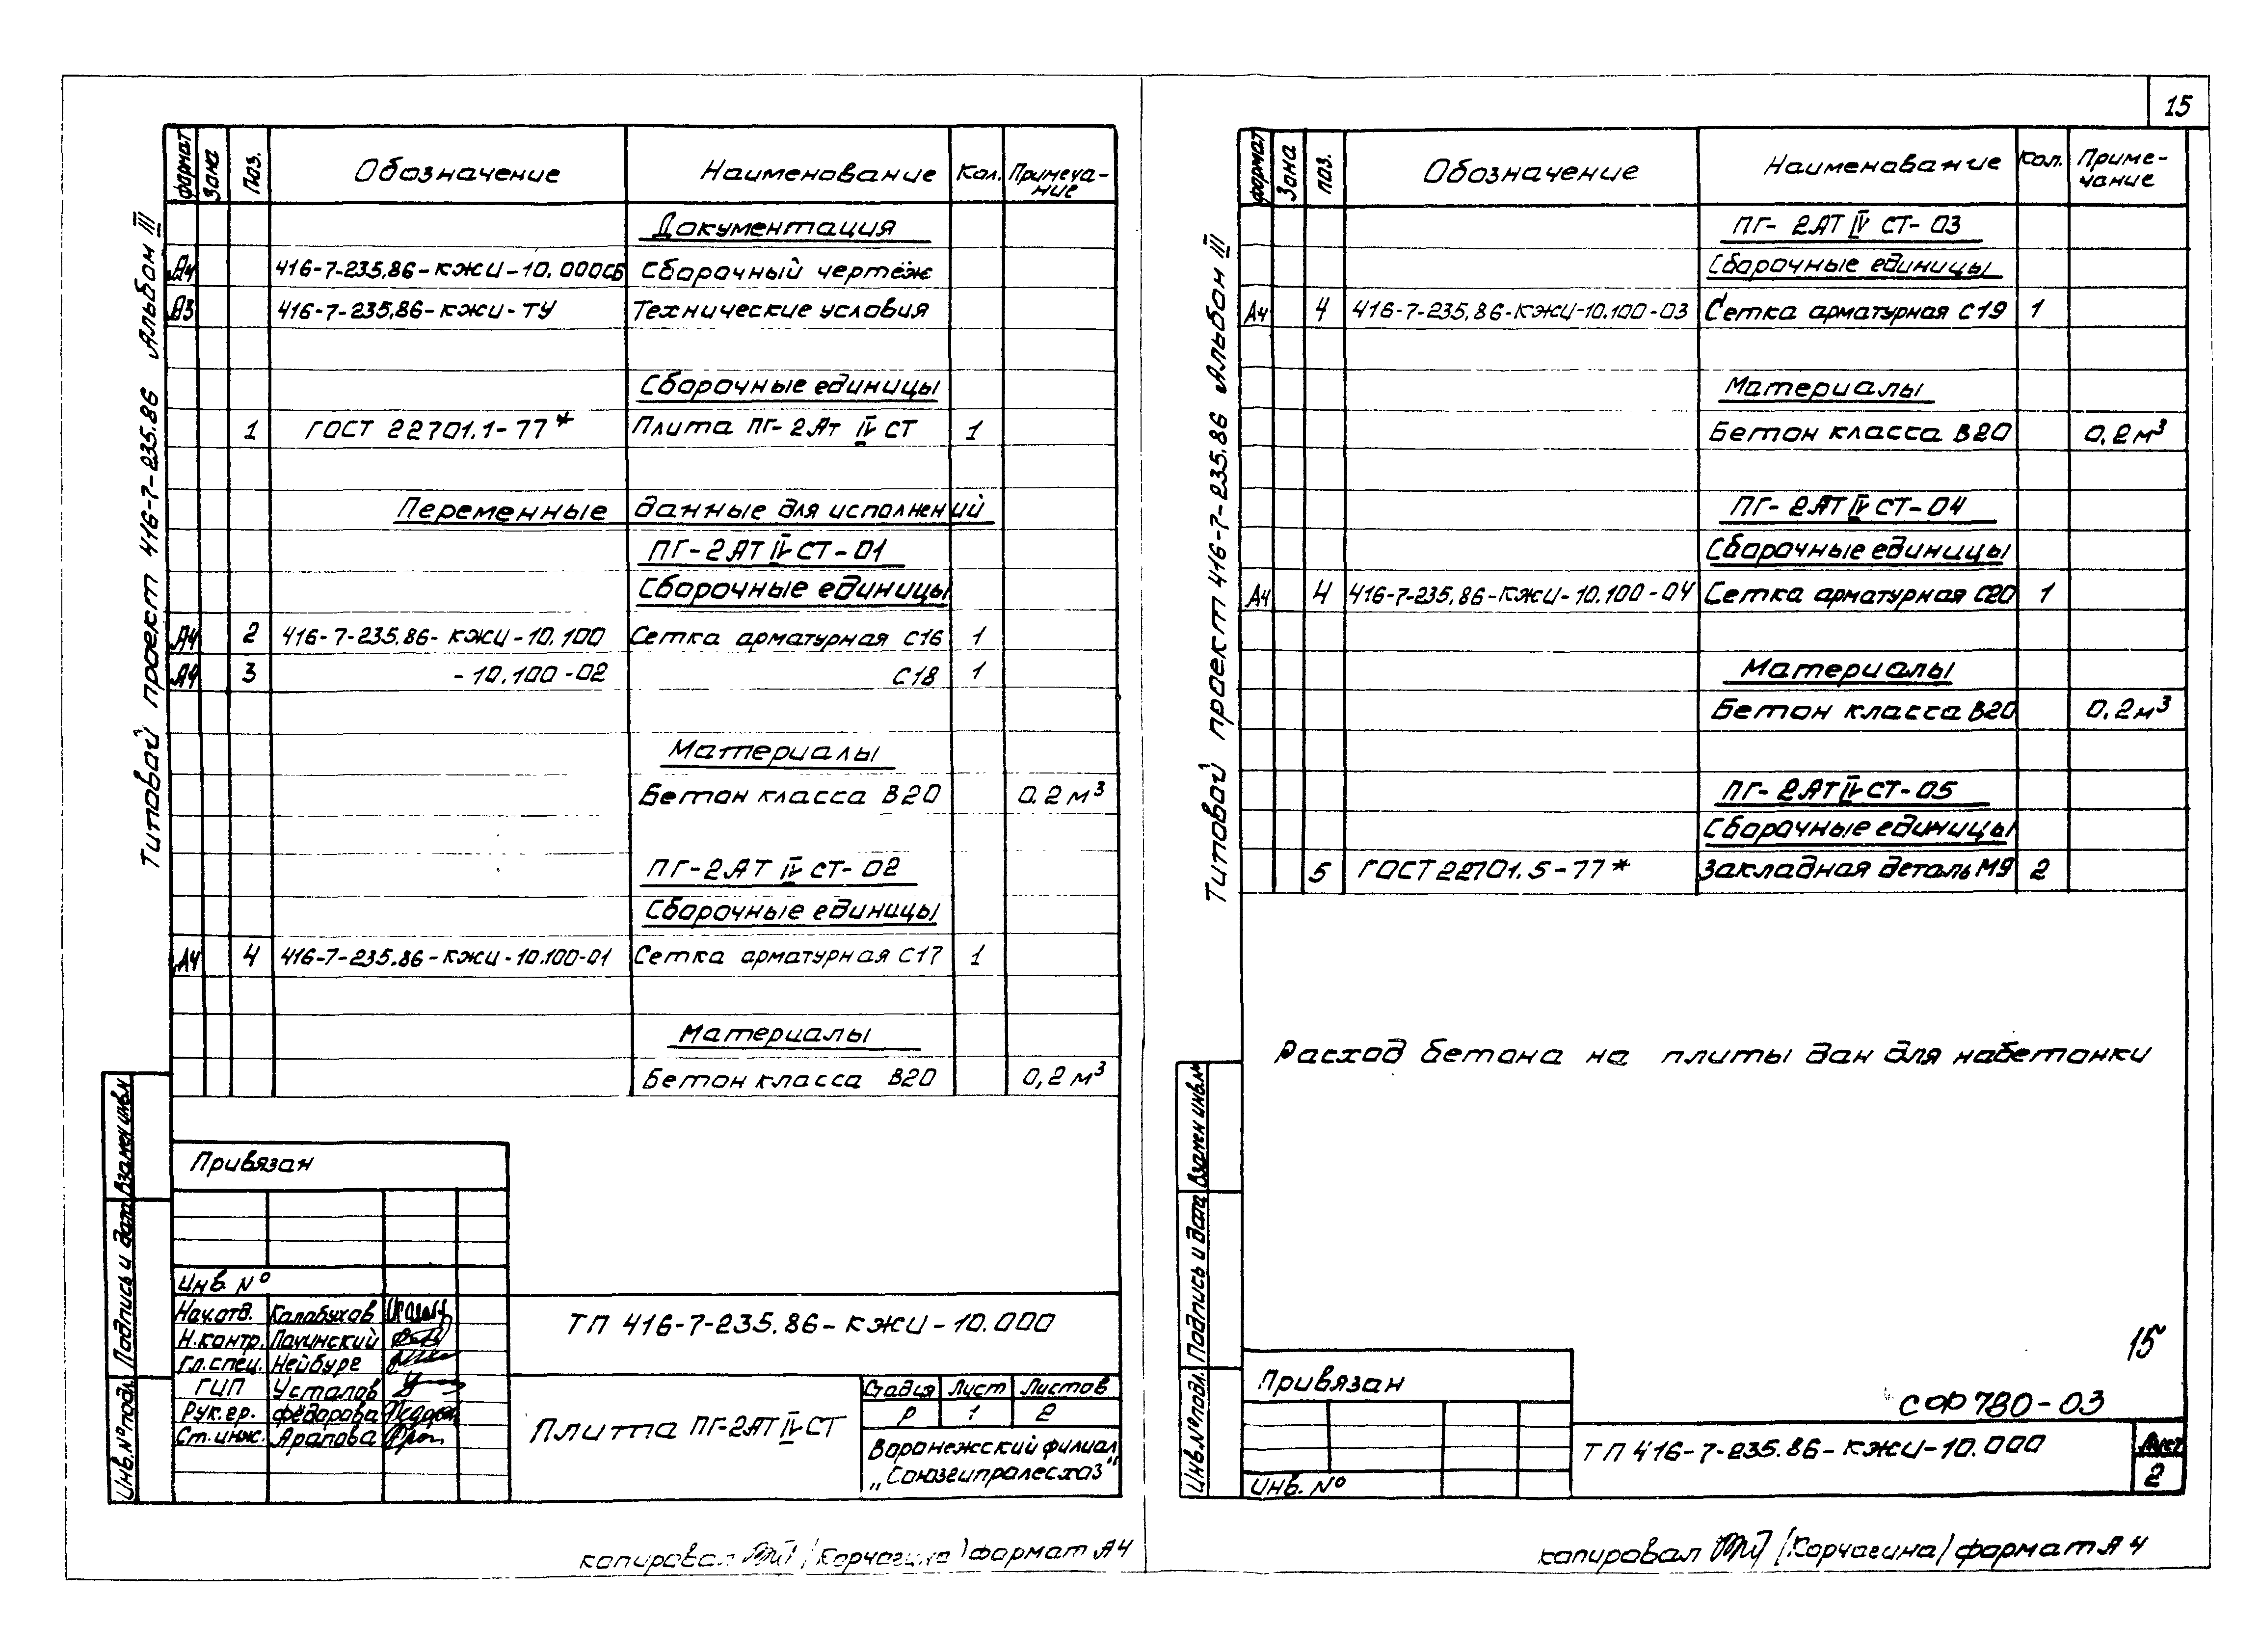 15
Типовой проект 416-7-235.86 Альбом III
Формат Зона Поз. Обозначение Наименование Кол. Примеча-
ние
Документация
А4 416-7-235.86-КЖИ-10.000СБ Сборочный чертёж
А3 416-7-235.86-КЖИ-ТУ Технические условия
Сборочные единицы
1 ГОСТ 22701.1-77* Плита ПГ-2Ат IV СТ 1
Переменные данные для исполнений
ПГ-2АТ IV СТ-01
Сборочные единицы
А4 2 416-7-235.86-КЖИ-10.100 Сетка арматурная С16 1
А4 3 -10.100-02 С18 1
Материалы
Бетон класса В20 0.2 м³
ПГ-2АТ IV СТ-02
Сборочные единицы
А4 4 416-7-235.86-КЖИ-10.100-01 Сетка арматурная С17 1
Материалы
Бетон класса В20 0,2 м³
Взамен инв.№
Подпись и дата
Инв.№ подл.
Привязан
Инв. №
Нач.отд. Калабухов
Н.контр. Пачинский
Гл.спец. Нейбуре
ГИП Усталов
Рук.гр. Фёдорова
Ст.инж. Арапова
ТП 416-7-235.86-КЖИ-10.000
Плита ПГ-2АТ IV СТ
Стадия Лист Листов
Р 1 2
Воронежский филиал
„Союзгипролесхоз"
копировал /Корчагина/ формат А4
Типовой проект 416-7-235.86 Альбом III
Формат Зона Поз. Обозначение Наименование Кол. Приме-
чание
ПГ-2АТ IV СТ-03
Сборочные единицы
А4 4 416-7-235.86-КЖИ-10.100-03 Сетка арматурная С19 1
Материалы
Бетон класса В20 0,2 м³
ПГ-2АТ IV СТ-04
Сборочные единицы
А4 4 416-7-235.86-КЖИ-10.100-04 Сетка арматурная С20 1
Материалы
Бетон класса В20 0.2 м³
ПГ-2АТ IV СТ-05
Сборочные единицы
5 ГОСТ 22701.5-77* Закладная деталь М9 2
Расход бетона на плиты дан для набетонки
Взамен инв.№
Подпись и дата
Инв.№ подл.
15
СФ 780-03
Привязан
Инв. №
ТП 416-7-235.86-КЖИ-10.000
Лист
2
копировал /Корчагина/ формат А4